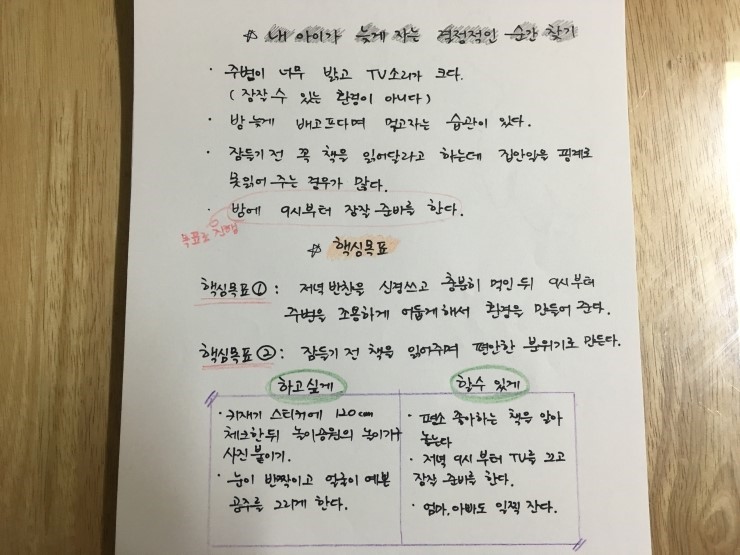 ☆ 내 아이가 늦게 자는 결정적인 순간 찾기
· 주변이 너무 밝고 TV소리가 크다.
( 잠잘 수 있는 환경이 아니다 )
· 밤 늦게 배고프다며 먹고자는 습관이 있다.
· 잠들기 전 꼭 책을 읽어달라고 하는데 집안일을 핑계로
못읽어 주는 경우가 많다.
· 밤에 9시부터 잠잘 준비를 한다.
목표로 진행
☆ 핵심목표
핵심목표 ① : 저녁 반찬을 신경쓰고 충분히 먹인 뒤 9시부터
주변을 조용하게 어둡게 해서 환경을 만들어 준다.
핵심목표 ② : 잠들기 전 책을 읽어주며 편안한 분위기로 만든다.
하고 싶게
· 키재기 스티커에 120cm
체크한 뒤 놀이공원의 놀이기구
사진 붙이기.
· 눈이 반짝이고 얼굴이 예쁜
공주를 그리게 한다.
할 수 있게
· 평소 좋아하는 책을 알아
놓는다
· 저녁 9시부터 TV를 끄고
잠잘 준비를 한다.
· 엄마, 아빠도 일찍 잔다.